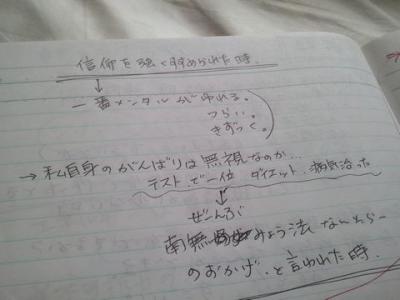 信仰を強く求められた時.
↓
一番メンタルがやられる。
つらい。
きずつく。
→ 私自身のがんばりは無視なのか...
テストで一位 ダイエット 病気治った
↓
ぜーんぶ
南無 みょう法 なんたら
のおかげ。と言われた時.